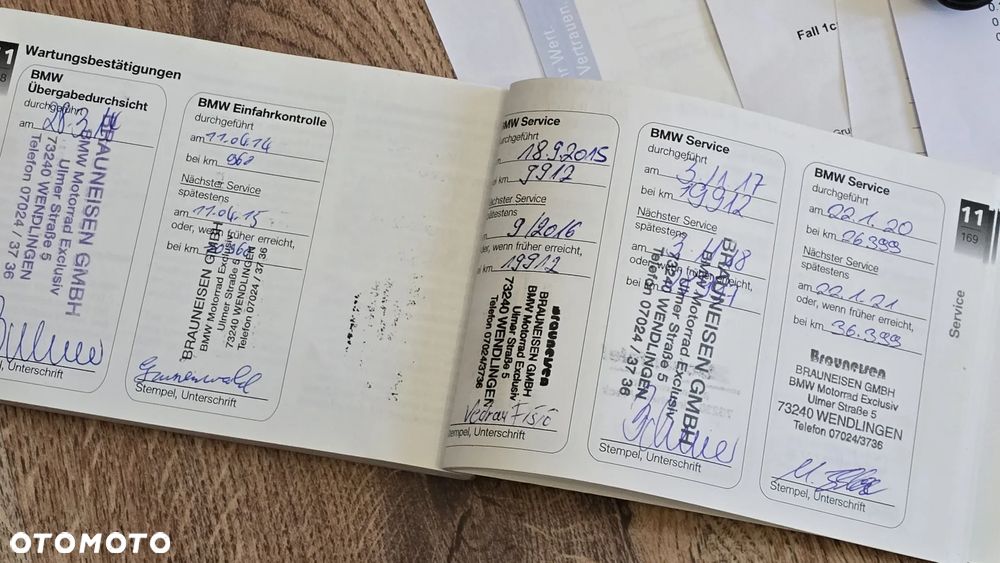 Vertrauen.
r Wert.
Fall 1c
11
8
Wartungsbestätigungen
BMW
Übergabedurchsicht
durchgeführt
am 28.3.14
BRAUNEISEN GMBH
BMW Motorrad Exclusiv
Ulmer Straße 5
73240 WENDLINGEN
Telefon 07024 / 37 36
l, Unterschrift
BMW Einfahrkontrolle
durchgeführt
am 11.04.14
bei km 968
Nächster Service
spätestens
am 11.04.15
oder, wenn früher erreicht,
bei km
BRAUNEISEN GMBH
BMW Motorrad Exclusiv
Ulmer Straße 5
73240 WENDLINGEN
Telefon 07024 / 37 36
Grunenwald
Stempel, Unterschrift
BMW Service
durchgeführt
18.9.2015
km 9912
Nächster Service
spätestens
9/2016
der, wenn früher erreicht,
ei km 19912
Brauneisen
BRAUNEISEN GMBH
BMW Motorrad Exclusiv
Ulmer Straße 5
73240 WENDLINGEN
Telefon 07024/3736
empel, Unterschrift
BMW Service
durchgeführt
am 3.11.17
bei km 19912
Nächster Service
spätestens
am
oder, wenn früher erreicht,
bei km
BRAUNEISEN GMBH
BMW Motorrad Exclusiv
Ulmer Straße 5
73240 WENDLINGEN
Telefon 07024 / 37 36
Stempel, Unterschrift
BMW Service
durchgeführt
am 22.1.20
bei km 26.399
Nächster Service
spätestens
am 22.1.21
oder, wenn früher erreicht,
bei km 36.399
Brauneisen
BRAUNEISEN GMBH
BMW Motorrad Exclusiv
Ulmer Straße 5
73240 WENDLINGEN
Telefon 07024/3736
Stempel, Unterschrift
11
169
Service
OTOMOTO